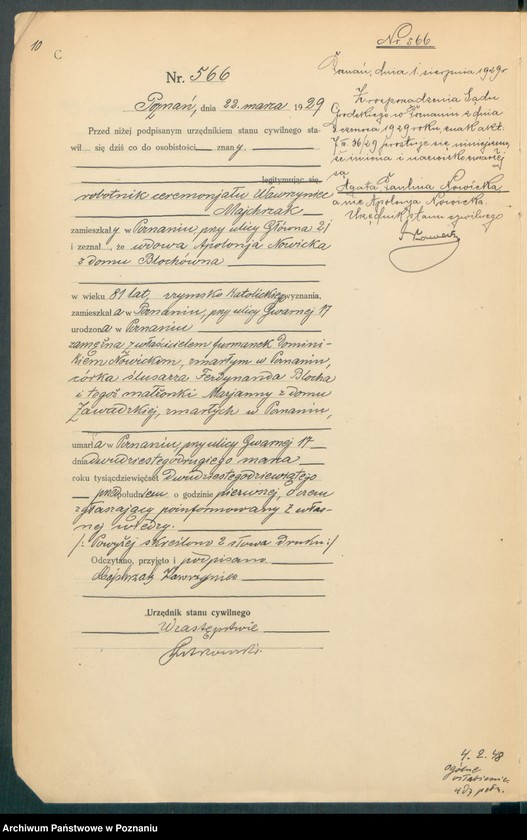 10
C
Nr. 566
Poznań, dnia 22. marca 1929
Przed niżej podpisanym urzędnikiem stanu cywilnego sta-
wił się dziś co do osobistości znany.
legitymując się
robotnik ceremonjału Wawrzyniec
Majchrzak
zamieszkały w Poznaniu, przy ulicy Głównej 21
i zeznał, że wdowa Apolonja Nowicka
z domu Blochówna
w wieku 81 lat, rzymsko katolickiego wyznania,
zamieszkała w Poznaniu, przy ulicy Gwarnej 17
urodzona w Poznaniu
zamężna z właścicielem furmanek Domini-
kiem Nowickim, zmarłym w Poznaniu,
córka ślusarza Ferdynanda Blocha
i tegoż małżonki Marjanny z domu
Zawadzkiej, zmarłych w Poznaniu,
umarła w Poznaniu, przy ulicy Gwarnej 17
dnia dwudziestegodrugiego marca
roku tysiącdziewięćset dwudziestegodziewiątego
przedpołudniem o godzinie pierwszej, o czem
zgłaszający poinformowany z włas-
nej wiedzy.
/: Powyżej skreślono 2 słowa druku :/
Odczytano, przyjęto i podpisano
Majchrzak Wawrzyniec
Urzędnik stanu cywilnego
W zastępstwie
Nr. 566
Poznań, dnia 1. sierpnia 1929 r.
Z rozporządzenia Sądu
Grodzkiego w Poznaniu z dnia
czerwca 1929 roku, znak akt.
36/29 prostuje się niniejszem,
że imiona i nazwisko zmarłej
są
Agata Paulina Nowicka
a nie Apolonja Nowicka.
Urzędnik stanu cywilnego
4. 2. 48
ogólne
osłabienie
Archiwum Państwowe w Poznaniu